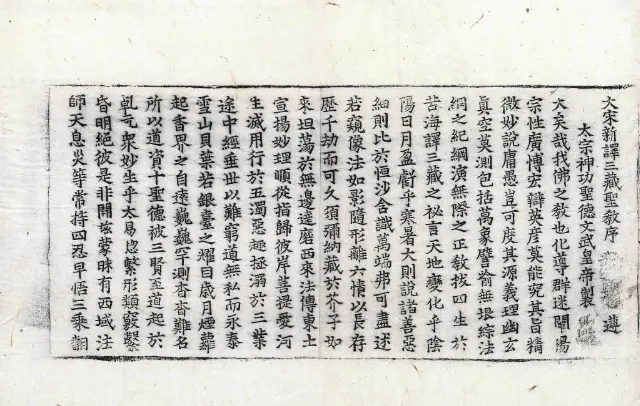 大宋新譯三藏聖教序 遵
太宗神功聖德文武皇帝製
大矣哉我佛之教也化導群迷闡揚
宗性廣博宏辯英彥莫能究其旨精
微妙說庸愚豈可度其源義理幽玄
真空莫測包括萬象譬喻無垠綜法
網之紀綱演無際之正教拔四生於
苦海譯三藏之祕言天地變化乎陰
陽日月盈虧乎寒暑大則說諸善惡
細則比於恒沙含識萬端弗可盡述
若窺像法如影隨形離六情以長存
歷千劫而可久須彌納藏於芥子如
來坦蕩於無邊達磨西來法傳東土
宣揚妙理順從指歸彼岸菩提愛河
生滅用行於五濁惡趣拯溺於三業
途中經垂世以難窮道無私而永泰
雪山貝葉若銀臺之耀目歲月煙蘿
起香界之自遠巍巍罕測杳杳難名
所以道資十聖德被三賢至道起於
乹元衆妙生乎太易虛繁形類竅鑿
昏明絕彼是非開茲蒙昧有西域法
師天息災等常持四忍早悟三乘翻